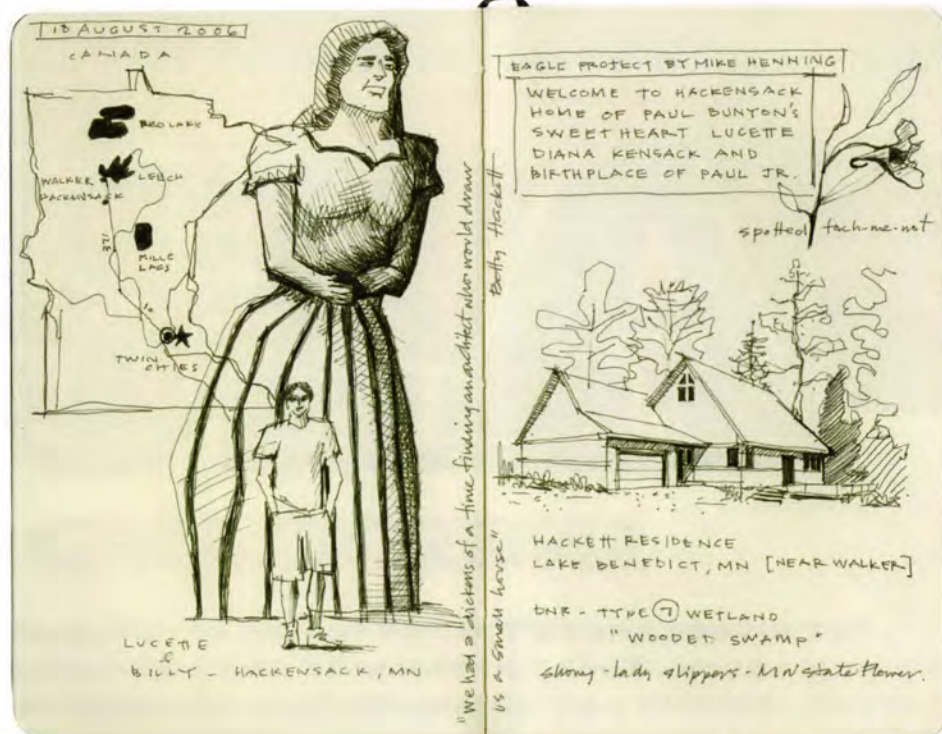 18 AUGUST 2006
CANADA
RED LAKE
LEECH
WALKER
HACKENSACK
371
MILLE
LACS
10
TWIN
CITIES
LUCETTE
&
BILLY - HACKENSACK, MN
"We had a dickens of a time finding an architect who would draw
us a small house"
Betty Hackett
EAGLE PROJECT BY MIKE HENNING
WELCOME TO HACKENSACK
HOME OF PAUL BUNYON'S
SWEETHEART LUCETTE
DIANA KENSACK AND
BIRTHPLACE OF PAUL JR.
spotted touch-me-not
HACKETT RESIDENCE
LAKE BENEDICT, MN [NEAR WALKER]
DNR - TYPE 7 WETLAND
"WOODED SWAMP"
Showy-lady slippers - MN State Flower.